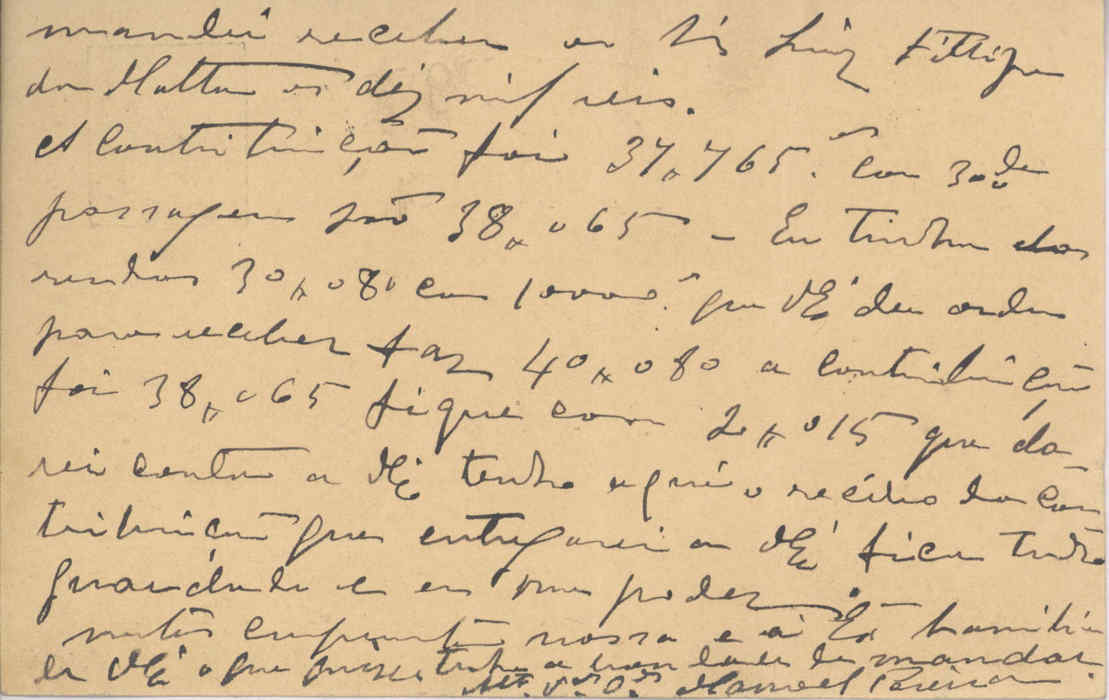 mandei receber ao Sr Luiz Fillipe
da Matta os déz mil reis.
A Contribuição foi 37,,765. Com 300 de
passagem são 38,,065 – Eu tinha das
rendas 30,,080 com 10000 que VEª deu ordem
para receber faz 40,,080 a contribuição
foi 38,,065 fiquei com 2,,015 que da-
rei conta a VEª tenho aqui o recibo da con
tribuição que entregarei a VEª fica tudo
guardado e em meu poder.
muitos cumprimentos nossa e a Exª familia
de VEª o que quizer tenha a bondade de mandar.
Manoel Pereira